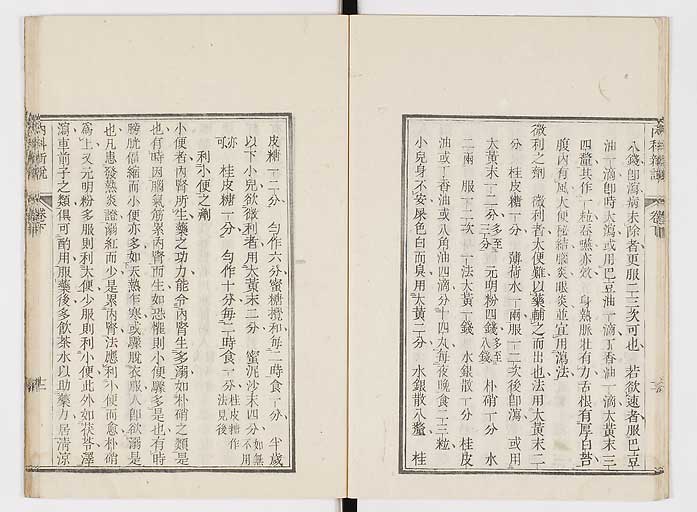 八錢卽瀉病未除者更服二三次可也　若欲速者服巴豆
油一滴卽時大瀉或用巴豆油一滴丁香油一滴大黃末三
四釐共作一粒吞嚥亦效　身熱脈壯有力舌根有厚白苔
腹內有風大便秘結腦炎眼炎並宜用瀉法
微利之劑　微利者大便難以藥輔之而出也法用大黃末二
分　桂皮糖一分　薄荷水一兩服一二次後卽瀉　或用
大黃末一二分多至三分　元明粉四錢多至八錢　朴硝一分　水
二兩　服一二次　一法大黃一錢　水銀散一分　桂皮
油或丁香油或八角油四滴分十四丸每夜晚食二三粒
小兒身不安屎色白而臭用大黃二分　水銀散八釐　桂
皮糖一二分　勻作六分蜜糖攪和每二時食一分　半歲
以下小兒欲微利者用大黃末二分　蜜沙末四分如無不用
亦可　桂皮糖一分　勻作十分每二時食一分桂皮糖作法見後
利小便之劑
小便者內腎所生藥之功力能令內腎生多溺如朴硝之類是
也有時因腦氣筋累內腎而生如恐懼則小便驟多是也有時
膀胱偪縮而小便亦多如天熱乍寒或驟脫衣服人卽欲溺是
也凡患發熱炎證溺紅而少是累內腎法應利小便而愈朴硝
爲上又元明粉多服則利大便少服則利小便此外如茯苓澤
瀉車前子之類俱可酌用服藥後多飲茶水以助藥力居清涼
內科新說
卷下